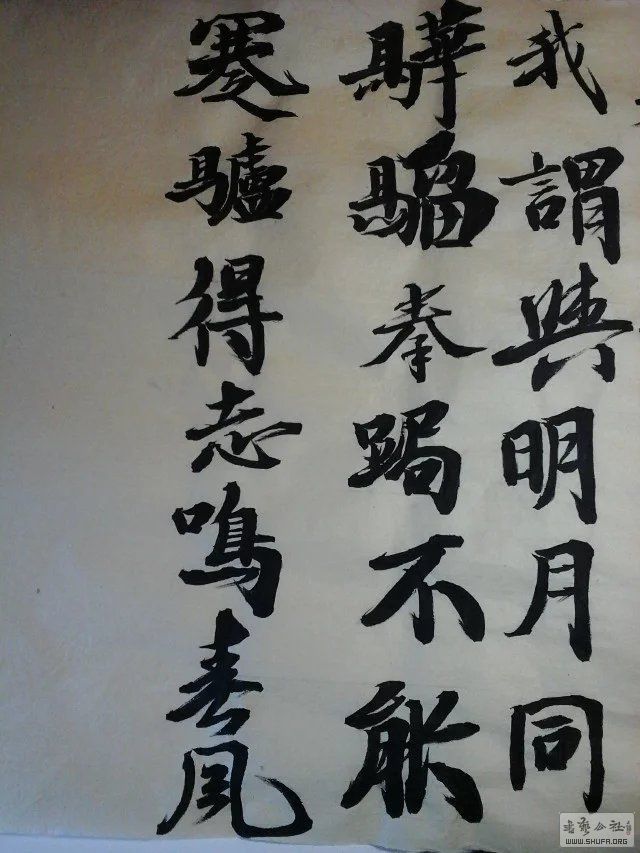 我謂與明月同
驊騮拳跼不能
蹇驢得志鳴春風
書藝公社
WWW.SHUFA.ORG